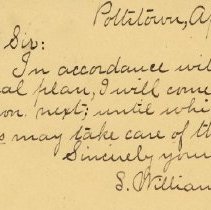 Pottstown, Ap
Sir:
In accordance wit
al plan, I will come
on next; until whi
s may take care of th
Sincerely your
S. William